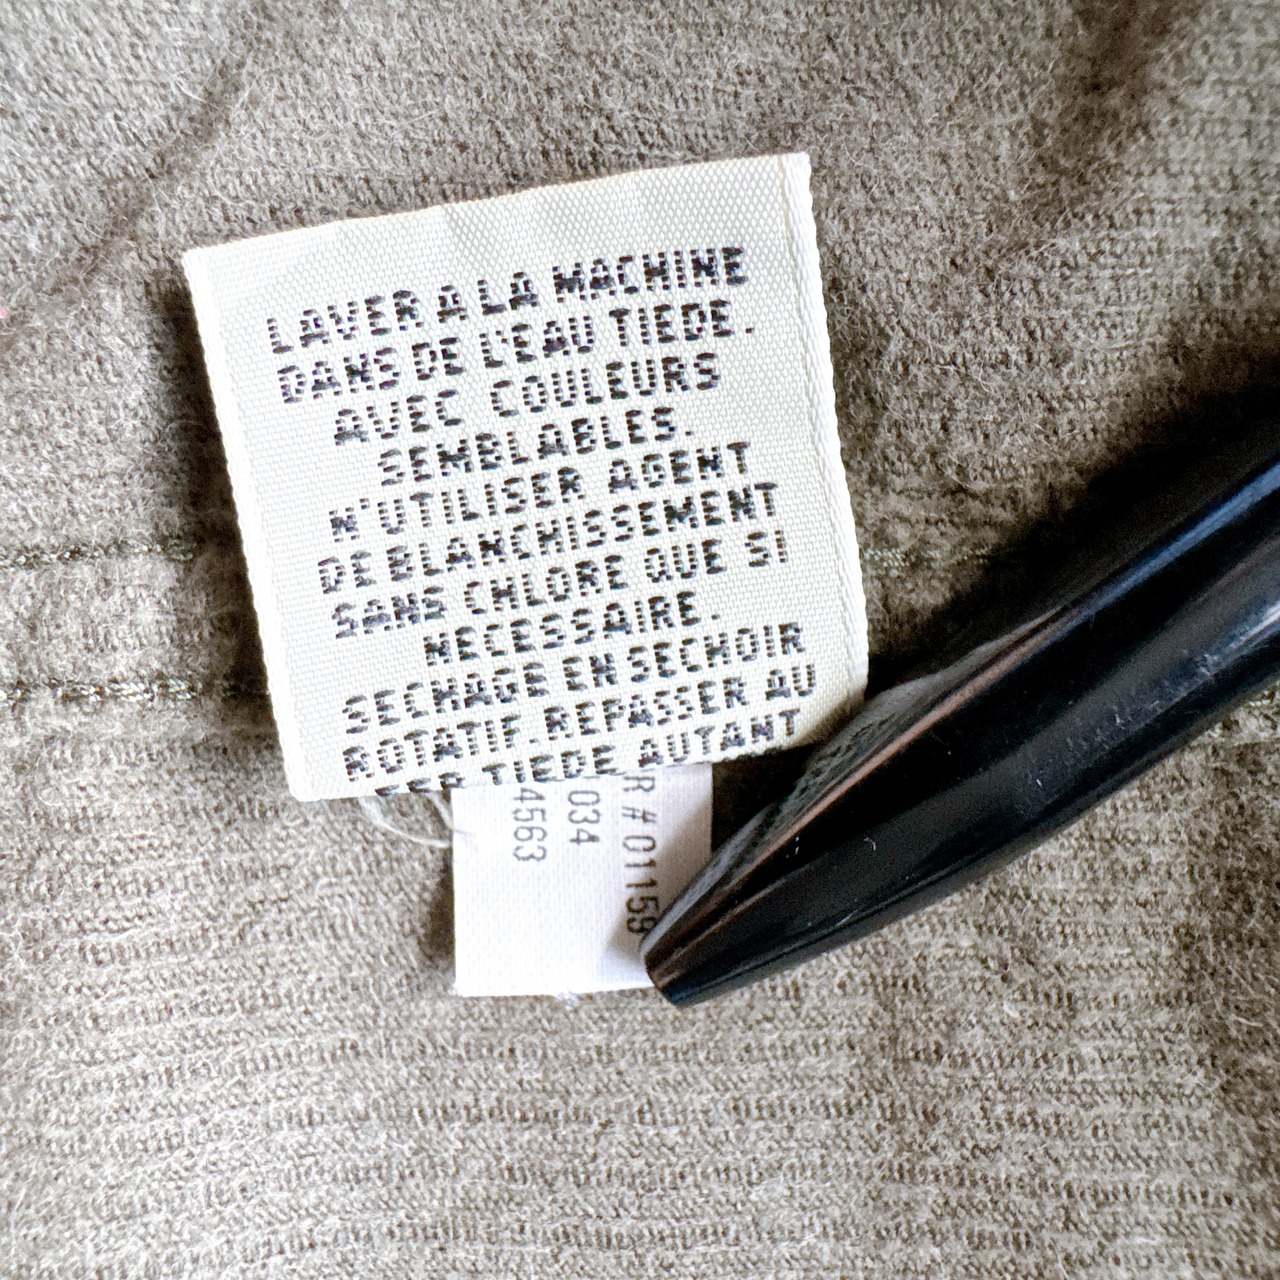 LAVER A LA MACHINE
DANS DE L'EAU TIEDE.
AVEC COULEURS
SEMBLABLES.
N'UTILISER AGENT
DE BLANCHISSEMENT
SANS CHLORE QUE SI
NECESSAIRE.
SECHAGE EN SECHOIR
ROTATIF. REPASSER AU
FER TIEDE AUTANT
R # 01159
034
4563